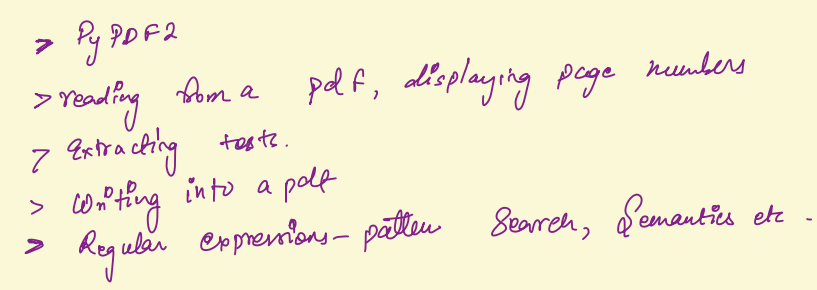 > PyPDF2
> reading from a pdf, displaying page numbers
> Extracting texts.
> Writing into a pdf
> Regular expressions - pattern Search, Semantics etc.